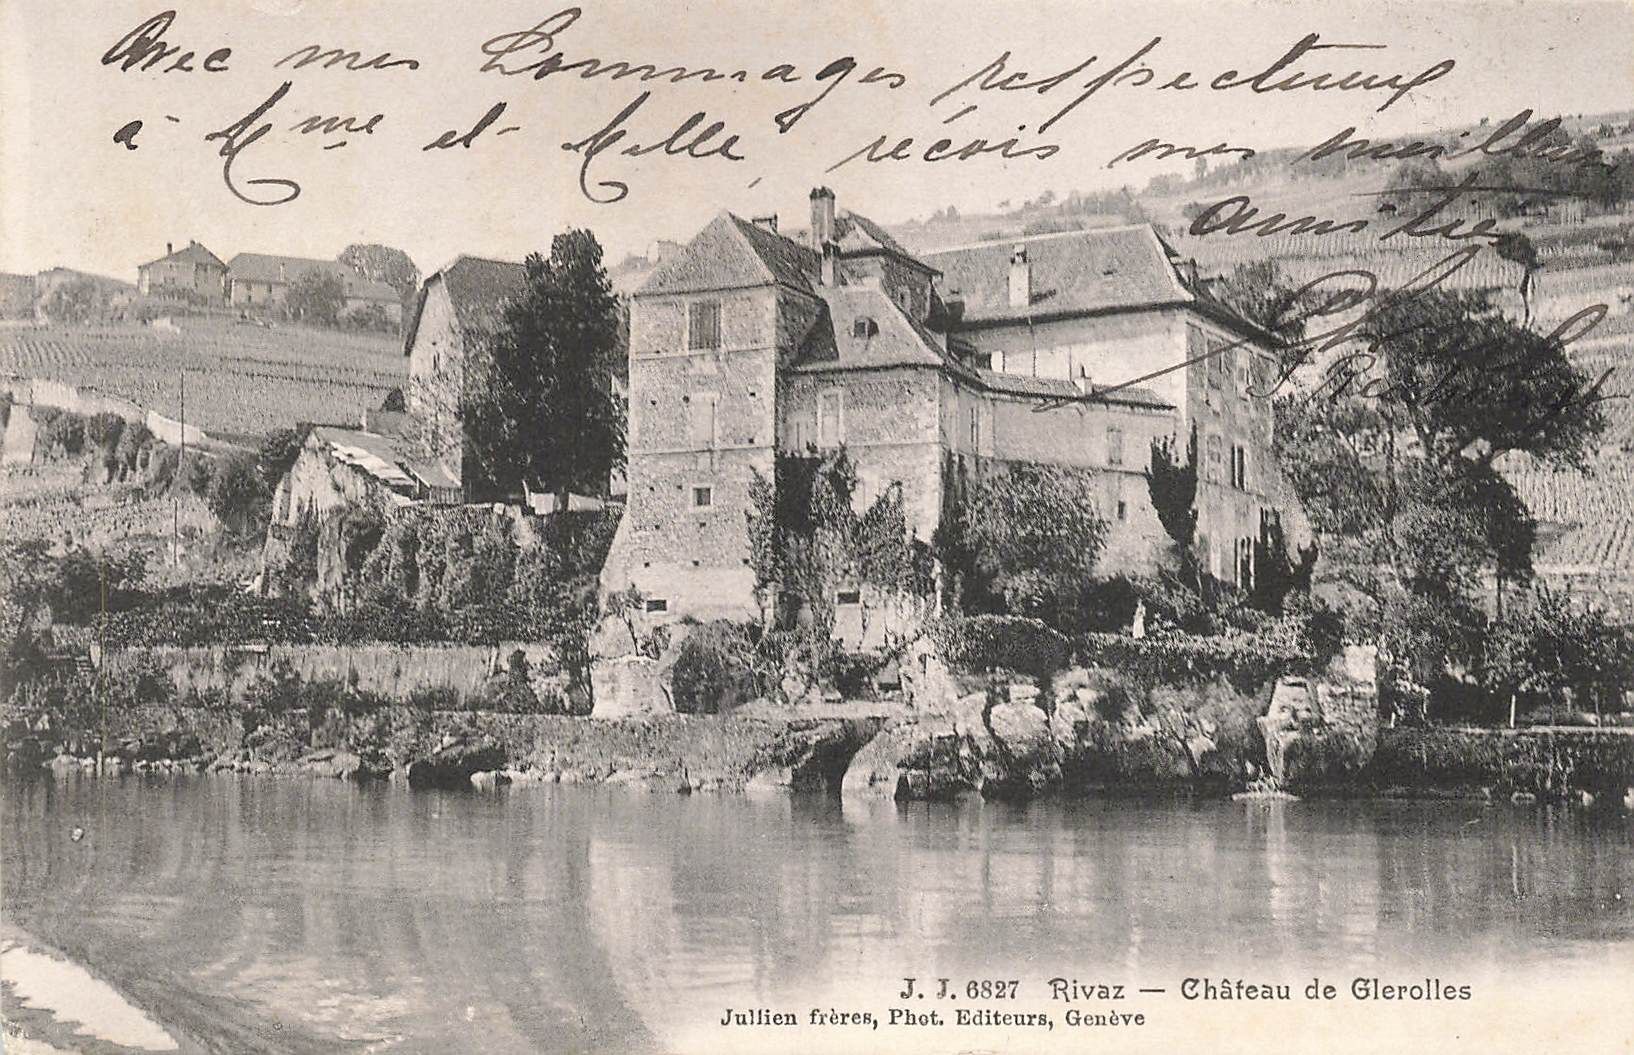 Avec mes hommages respectueux
à Mme et Melle, reçois mes meilleures
amitiés
J. J. 6827 Rivaz — Château de Glerolles
Jullien frères, Phot. Editeurs, Genève